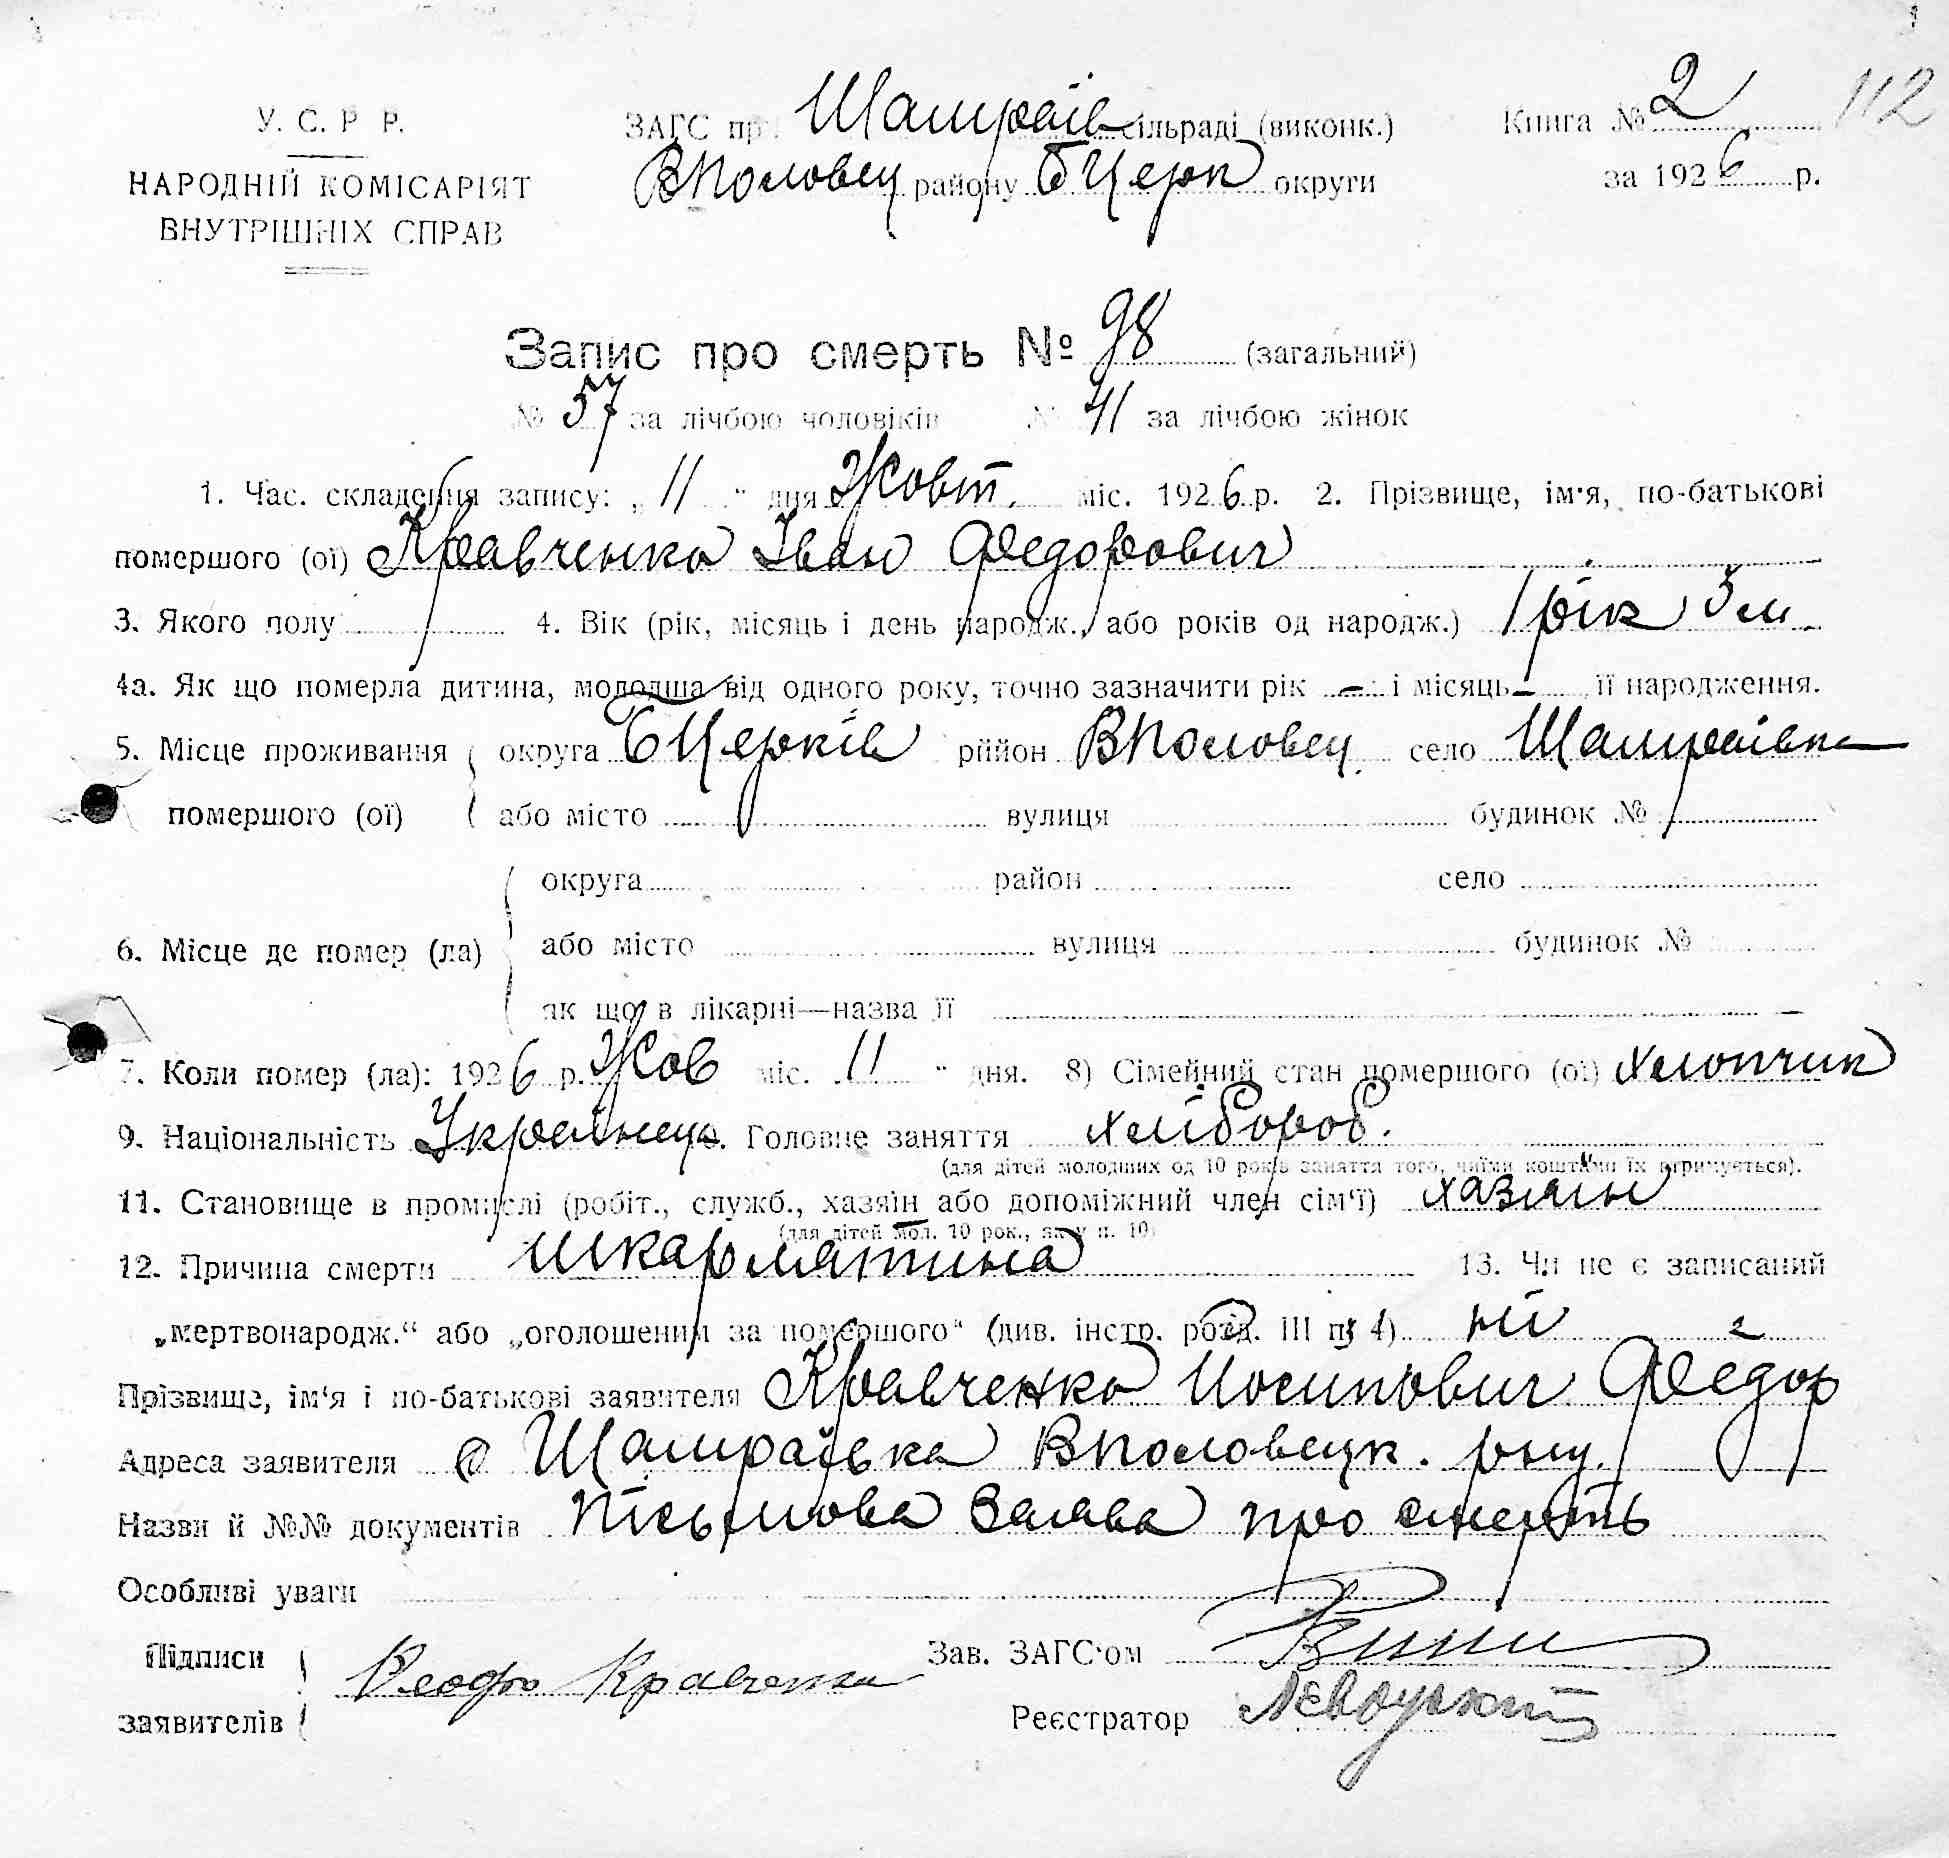 У. С. Р Р.
НАРОДНІЙ КОМІСАРІЯТ
ВНУТРІШНІХ СПРАВ
ЗАГС пр Шамраїв сільраді (виконк.)
ВПоловец району БЦерк округи
Книга № 2 112
за 1926 р.
Запис про смерть № 98 (загальний)
№ 57 за лічбою чоловіків № 41 за лічбою жінок
1. Час. складення запису: „ 11 " дня Жовт. міс. 1926 р. 2. Прізвище, ім'я, по-батькові
помершого (ої) Кравченко Іван Федорович
3. Якого полу 4. Вік (рік, місяць і день народж., або років од народж.) 1 рік 3 м.
4а. Як що померла дитина, молодша від одного року, точно зазначити рік – і місяць – її народження.
5. Місце проживання округа БЦерків район ВПоловец. село Шамраївка
помершого (ої) або місто вулиця будинок №
округа район село
6. Місце де помер (ла) або місто вулиця будинок №
як що в лікарні—назва її –
7. Коли помер (ла): 1926 р. Жов міс. 11 " дня. 8) Сімейний стан помершого (ої) хлопчик
9. Національність Українець. Головне заняття хлібороб.
(для дітей молодших од 10 років заняття того, чиїми коштами їх утримується).
11. Становище в промислі (робіт., служб., хазяін або допоміжний член сім'ї) хазяїн
(для дітей мол. 10 рок., як у п. 10)
12. Причина смерти шкарлятина 13. Чи не є записаний
„мертвонародж.“ або „оголошеним за помершого“ (див. інстр. розд. III п. 4) ні
Прізвище, ім'я і по-батькові заявителя Кравченко Иосипович Федор
Адреса заявителя с Шамраївка ВПоловецк. рну.
Назви й №№ документів Пісьмова Заява про смерть
Особливі уваги
Підписи
заявителів Кравченко
Зав. ЗАГС'ом
Реєстратор